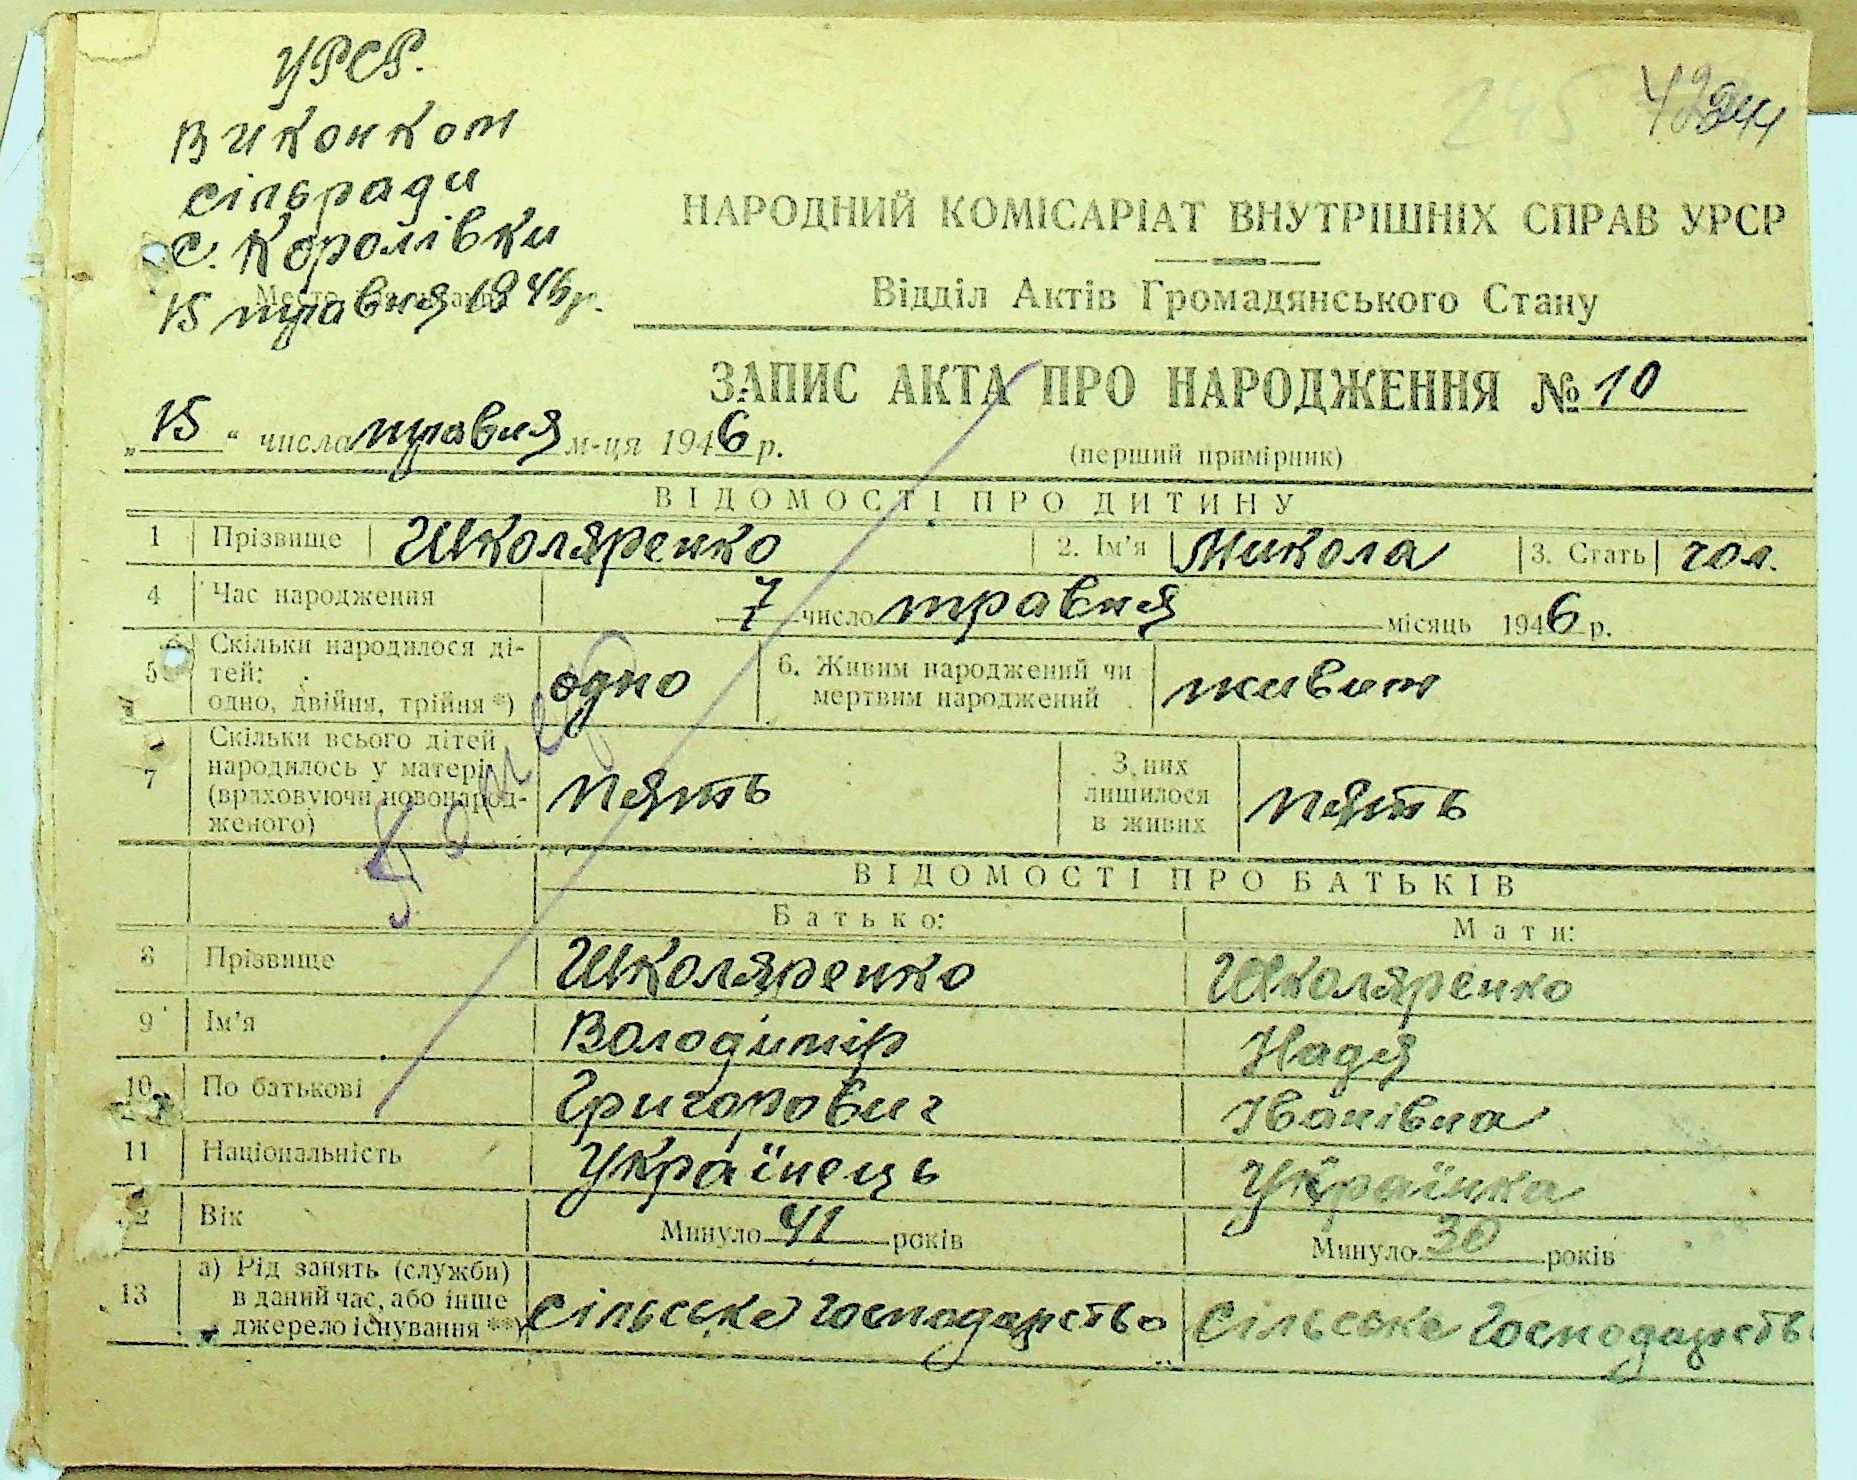 УРСР.
Виконком
сільради
с. Королівки
15 травня 1946р.
245
244
НАРОДНИЙ КОМІСАРІАТ ВНУТРІШНІХ СПРАВ УРСР
Відділ Актів Громадянського Стану
ЗАПИС АКТА ПРО НАРОДЖЕННЯ № 10
„15“ числа травня м-ця 1946 р.
(перший примірник)
ВІДОМОСТІ ПРО ДИТИНУ
1 Прізвище Школяренко 2. Ім'я Микола 3. Стать чол.
4 Час народження 7 число травня місяць 1946 р.
5 Скільки народилося ді-
тей:
одно, двійня, трійня *) одно 6. Живим народжений чи
мертвим народжений живим
7 Скільки всього дітей
народилось у матері
(враховуючи новонарод-
женого) пять З них
лишилося
в живих пять
Помер
ВІДОМОСТІ ПРО БАТЬКІВ
Батько: Мати:
8 Прізвище Школяренко Школяренко
9 Ім'я Володимір Надя
10 По батькові Григорович Іванівна
11 Національність Українець Українка
12 Вік Минуло 41 років Минуло 30 років
13 а) Рід занять (служби)
в даний час, або інше
джерело існування **) сільське господарство сільське господарство